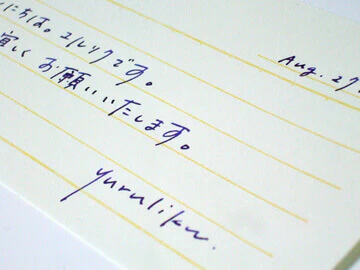 Aug. 27
んにちは。ユルリクです。
宜しくお願いいたします。
yururiku.